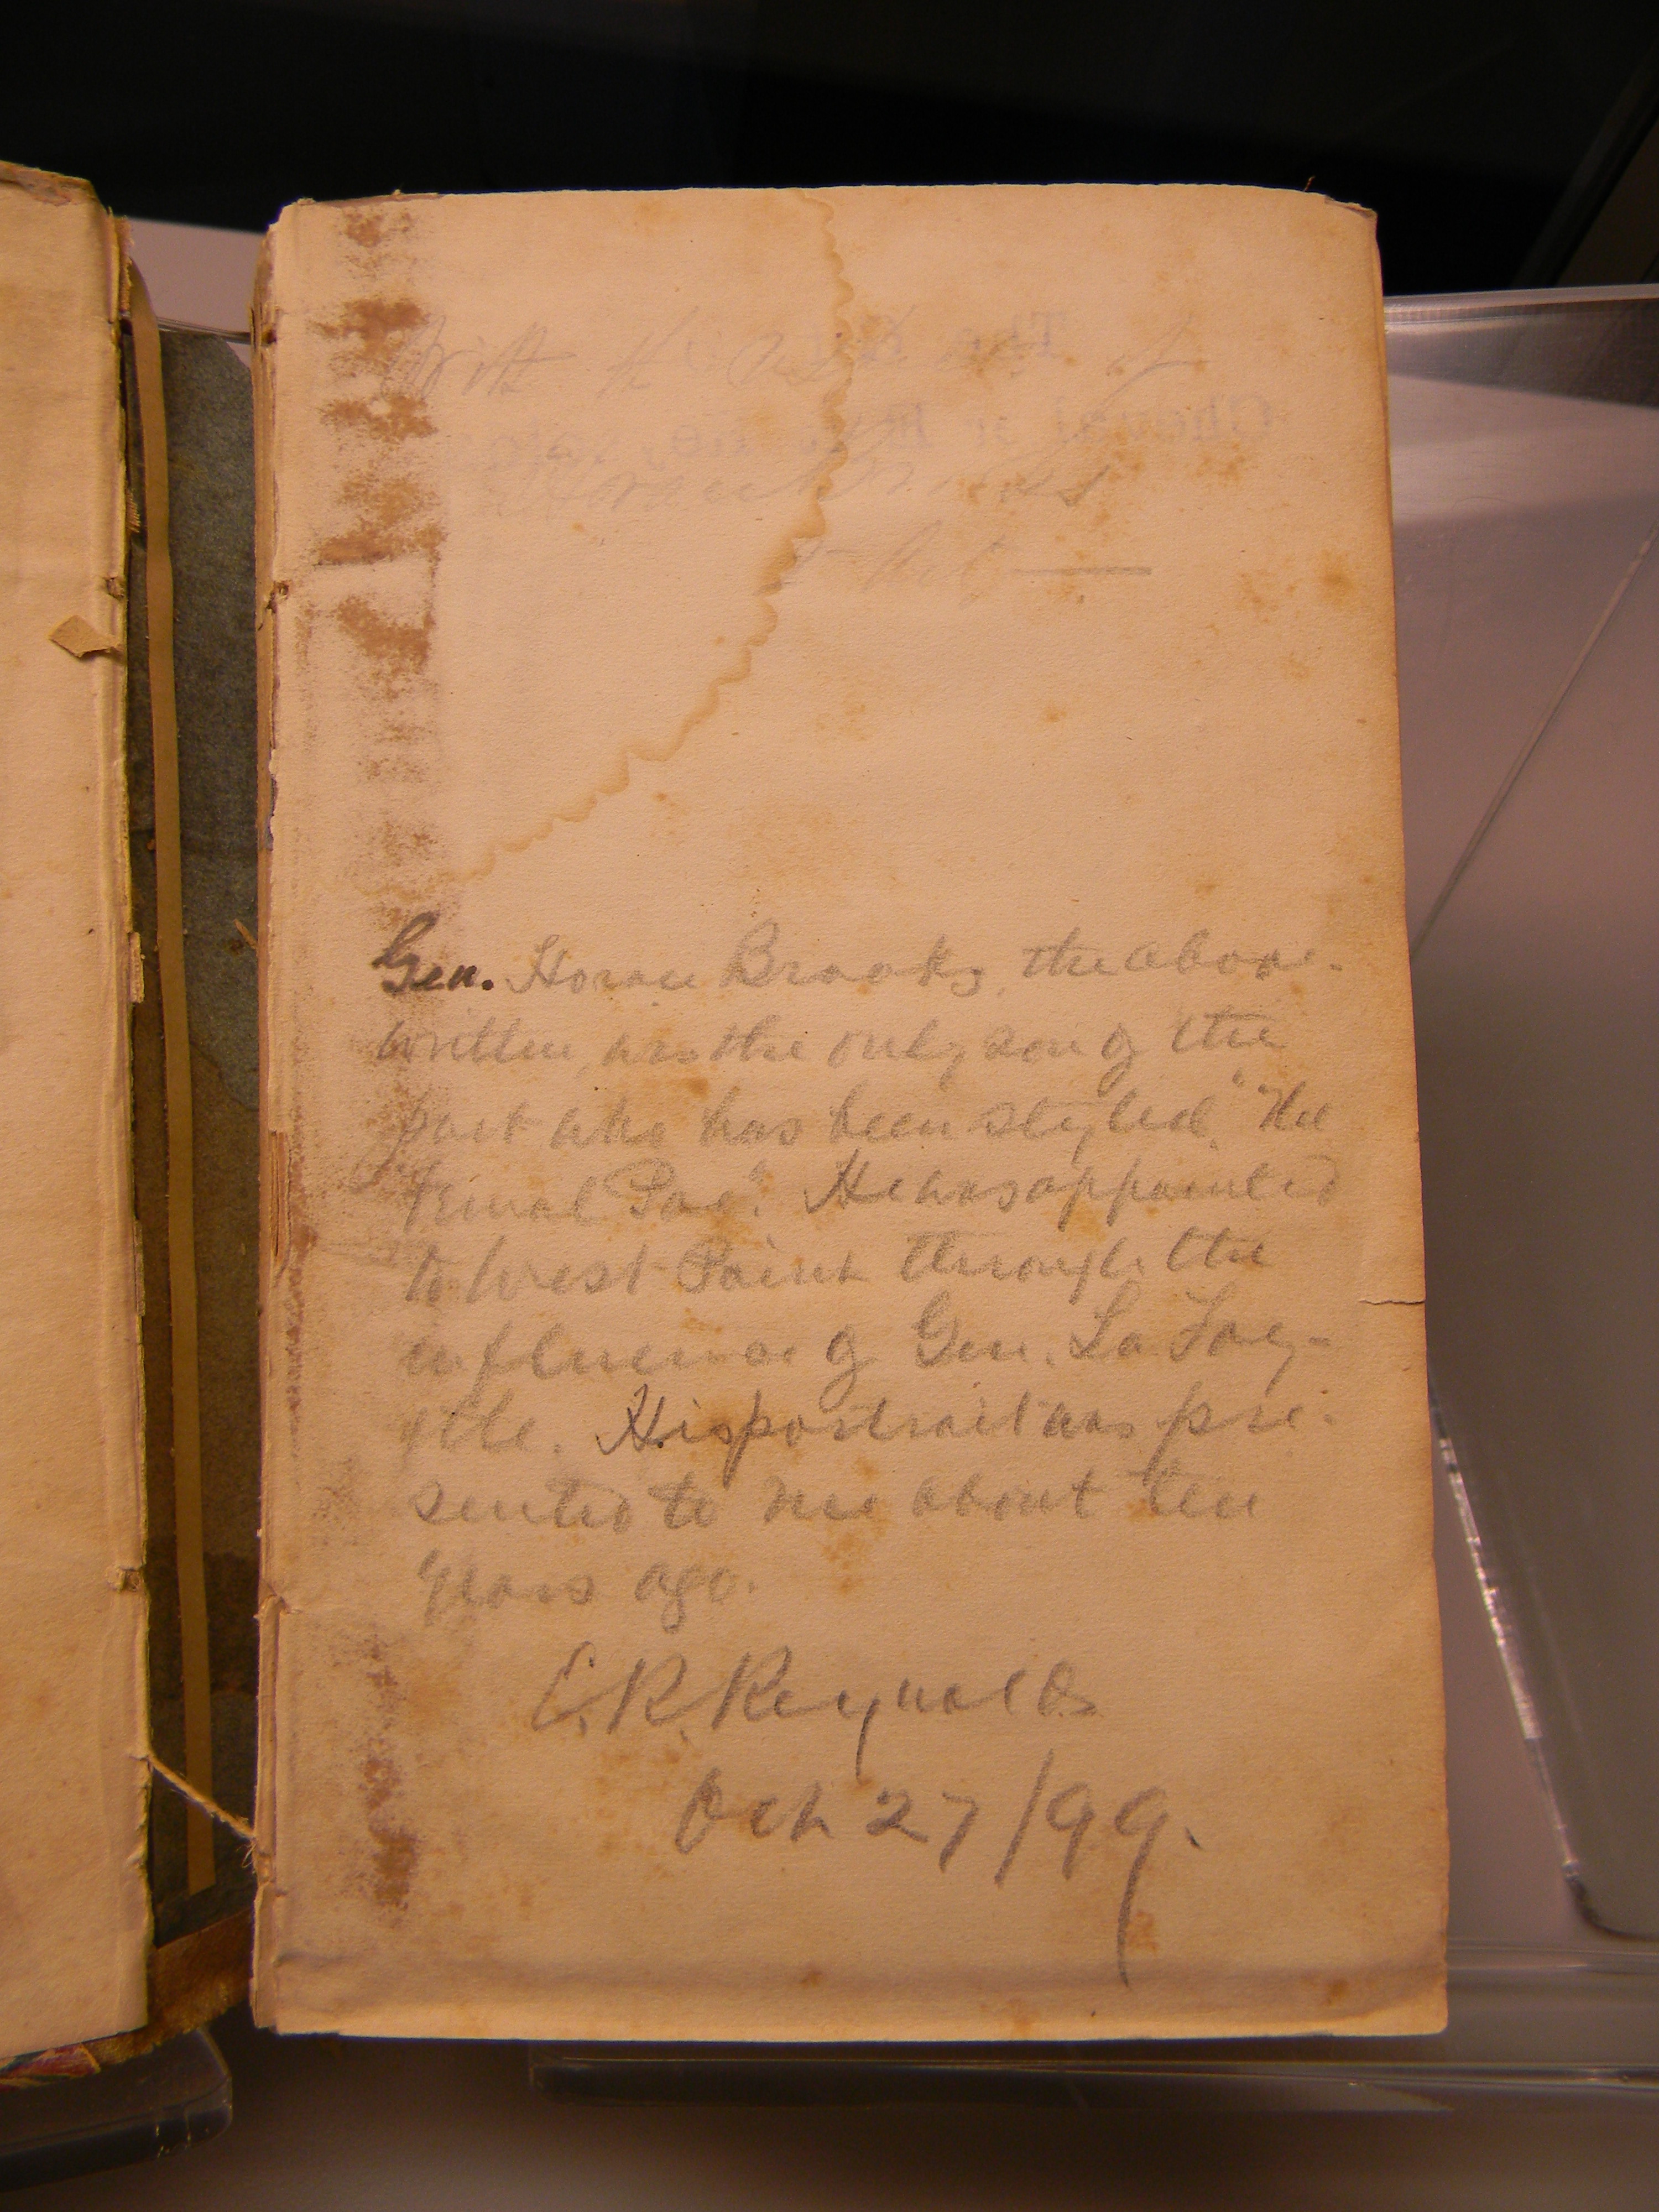 With
of
Horace Brooks
Gen. Horace Brooks, the above-
written, was the only son of the
poet who has been styled, "the
rival Poe". He was appointed
to West Point through the
influence of Gen. La Fay-
ette. His portrait was pre-
sented to me about ten
years ago.
C. R. Reynolds
Oct 27/99.